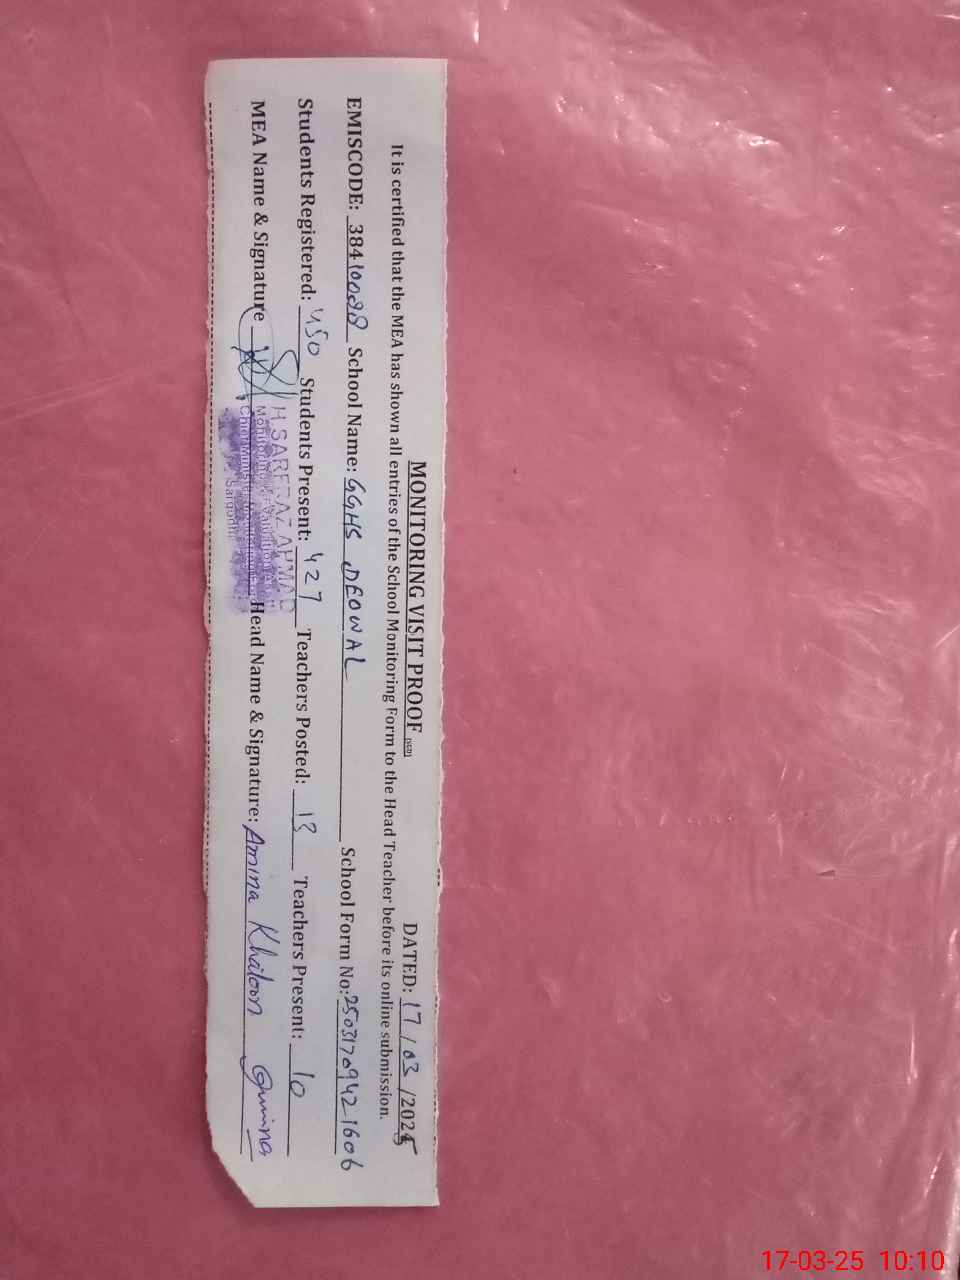 MONITORING VISIT PROOF (SGD)
DATED: 17/03/2025
It is certified that the MEA has shown all entries of the School Monitoring Form to the Head Teacher before its online submission.
EMISCODE: 38410088 School Name: GGHS DEOWAL School Form No: 250317094216 06
Students Registered: 450 Students Present: 427 Teachers Posted: 13 Teachers Present: 10
MEA Name & Signature Head Name & Signature: Amina Khatoon Amina
H SARFRAZ AHMAD
Monitoring
Sargodha
17-03-25 10:10